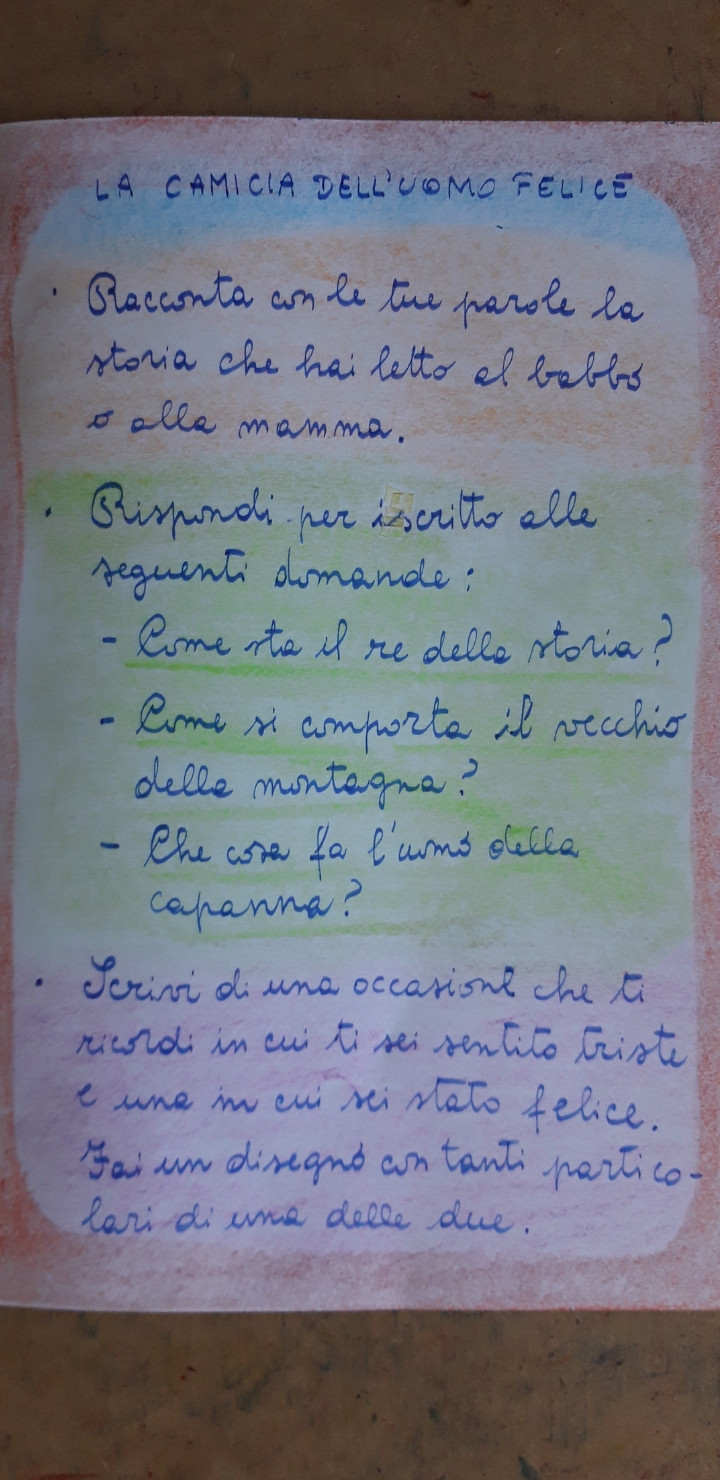 LA CAMICIA DELL'UOMO FELICE
· Racconta con le tue parole la
storia che hai letto al babbo
o alla mamma.
· Rispondi per iscritto alle
seguenti domande:
- Come sta il re della storia?
- Come si comporta il vecchio
della montagna?
- Che cosa fa l'uomo della
capanna?
· Scrivi di una occasione che ti
ricordi in cui ti sei sentito triste
e una in cui sei stato felice.
Fai un disegno con tanti partico-
lari di una delle due.